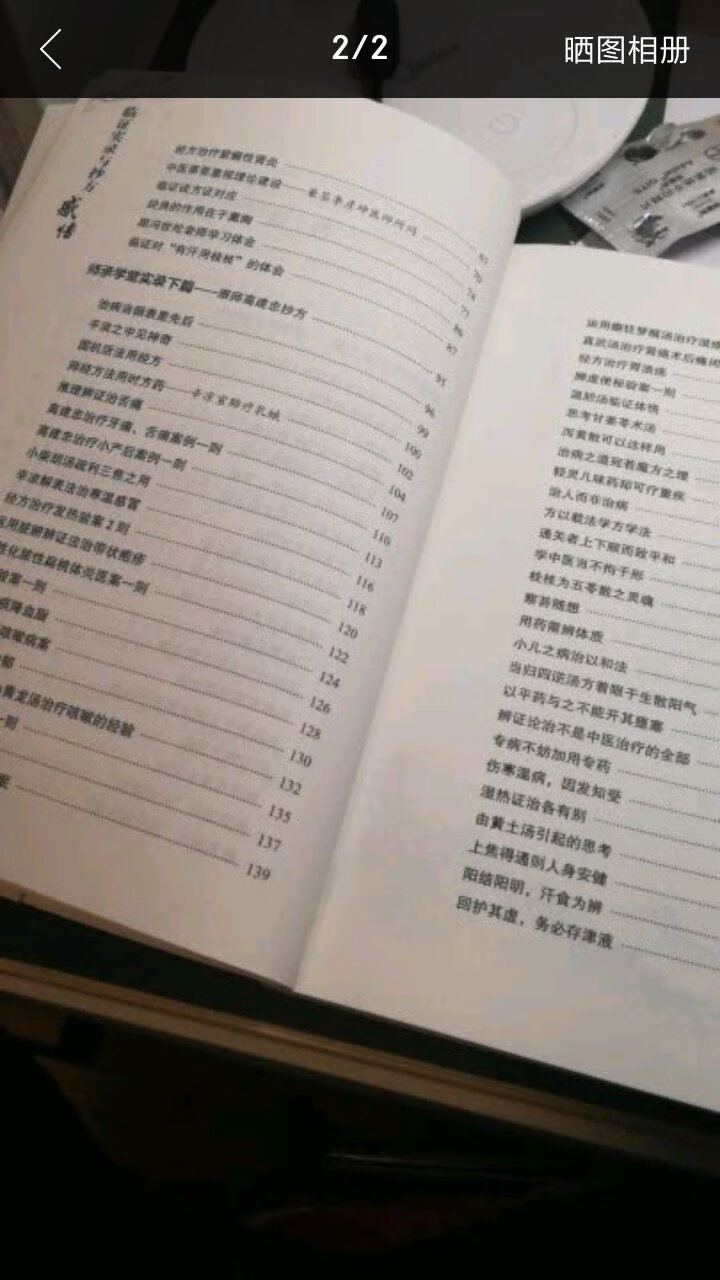 2/2
晒图相册
临证实录与抄方
感悟
经方治疗紫癜性肾炎 67
中医需要重视理论建设——兼答李彦坤医师所问 70
临证谈方证对应 74
经典的作用在于熏陶 77
跟冯世纶老师学习体会 86
临证对“有汗用桂枝”的体会 87
师承学堂实录下篇——跟师高建忠抄方 91
治病当据表里先后
平淡之中见神奇 96
圆机活法用经方 99
师经方法用时方药——辛凉宣肺疗乳蛾 100
推理辨证治舌痛 102
高建忠治疗牙痛、舌痛案例一则 104
高建忠治疗小产后案例一则 107
小柴胡汤疏利三焦之用 110
辛凉解表法治寒温感冒 113
经方治疗发热验案2则 116
运用脏腑辨证法治带状疱疹 118
性化脓性扁桃体炎医案一则 120
验案一则 122
痰降血脂 124
咳嗽病案 126
郁 128
黄龙汤治疗咳嗽的经验 130
一则 132
135
137
139
运用癫狂梦醒汤治疗湿疹
真武汤治疗胃癌术后癃闭
经方治疗胃溃疡
脾虚便秘验案一则
温胆汤临证体悟
思考甘姜苓术汤
泻黄散可以这样用
治病之道宛若魔方之理
轻灵几味药却可疗重疾
治人而非治病
方以载法学方学法
通关者上下顺而致平和
学中医当不拘于形
桂枝为五苓散之灵魂
察苔随想
用药需辨体质
小儿之病治以和法
当归四逆汤方着眼于生散阳气
以平药与之不能开其壅塞
辨证论治不是中医治疗的全部
专病不妨加用专药
伤寒温病，因发知受
湿热证治各有别
由黄土汤引起的思考
上焦得通则人身安健
阳结阳明，汗食为辨
回护其虚，务必存津液